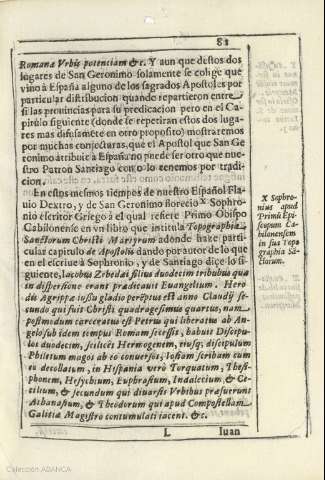 81
Romanæ Vrbis potentiam &c. Y aun que destos dos
lugares de San Geronimo solamente se colige que
vino à España alguno de los sagrados Apostoles por
particular distribucion quando repartieron entre
si las prouincias para su predicacion pero en el Ca-
pitulo siguiente (donde se repetiran estos dos luga-
res mas difusamẽte en otro proposito) mostraremos
por muchas conjecturas, que el Apostol que San Ge
ronimo atribuie a España no puede ser otro que nue-
stro Patron Santiago como lo tenemos por tradi-
cion.
En estos mesmos tiempos de nuestro Español Fla-
uio Dextro, y de San Geronimo florecio X Sophro-
nio escritor Griego à el qual refiere Primo Obispo
Cabilonense en vn libro que intitula Topographia
Sanctorum Christi Martyrum adonde haze parti-
cular capitulo de Apostolis dando por autor de lo que
en el escriue à Sophronio, y de Santiago dize lo si-
guiente, Iacobus Zebedæi filius duodecim tribubus quæ
in dispersione erant prædicauit Euangelium. Hero
dis Agrippæ iussu gladio perẽptus est anno Claudij se-
cundo qui fuit Christi quadragesimus quartus, nam
postmodum carceratus est Petrus qui liberatus ab An-
gelo sub idem tempus Romam secessit, habuit Discipu-
los duodecim, scilicet Hermogenem, eiusq; discipulum
Philetum magos ab eo conuersos, Iosiam scribam cum
eo decollatum, in Hispania verò Torquatum, Thesi-
phonem, Hesychium, Euphrasium, Indaletium & Ce-
cilium, & secundum qui diuersis Vrbibus præfuerunt
Athanasium, & Theodorum qui apud Compostellam
Galitiæ Magistro contumulati iacent. &c.
L
Iuan
X Sophro-
nius apud
Primũ Epi-
scopum Ca-
bilonensem
in sua Topo
graphia Sã-
ctorum.
Colección ADANCA